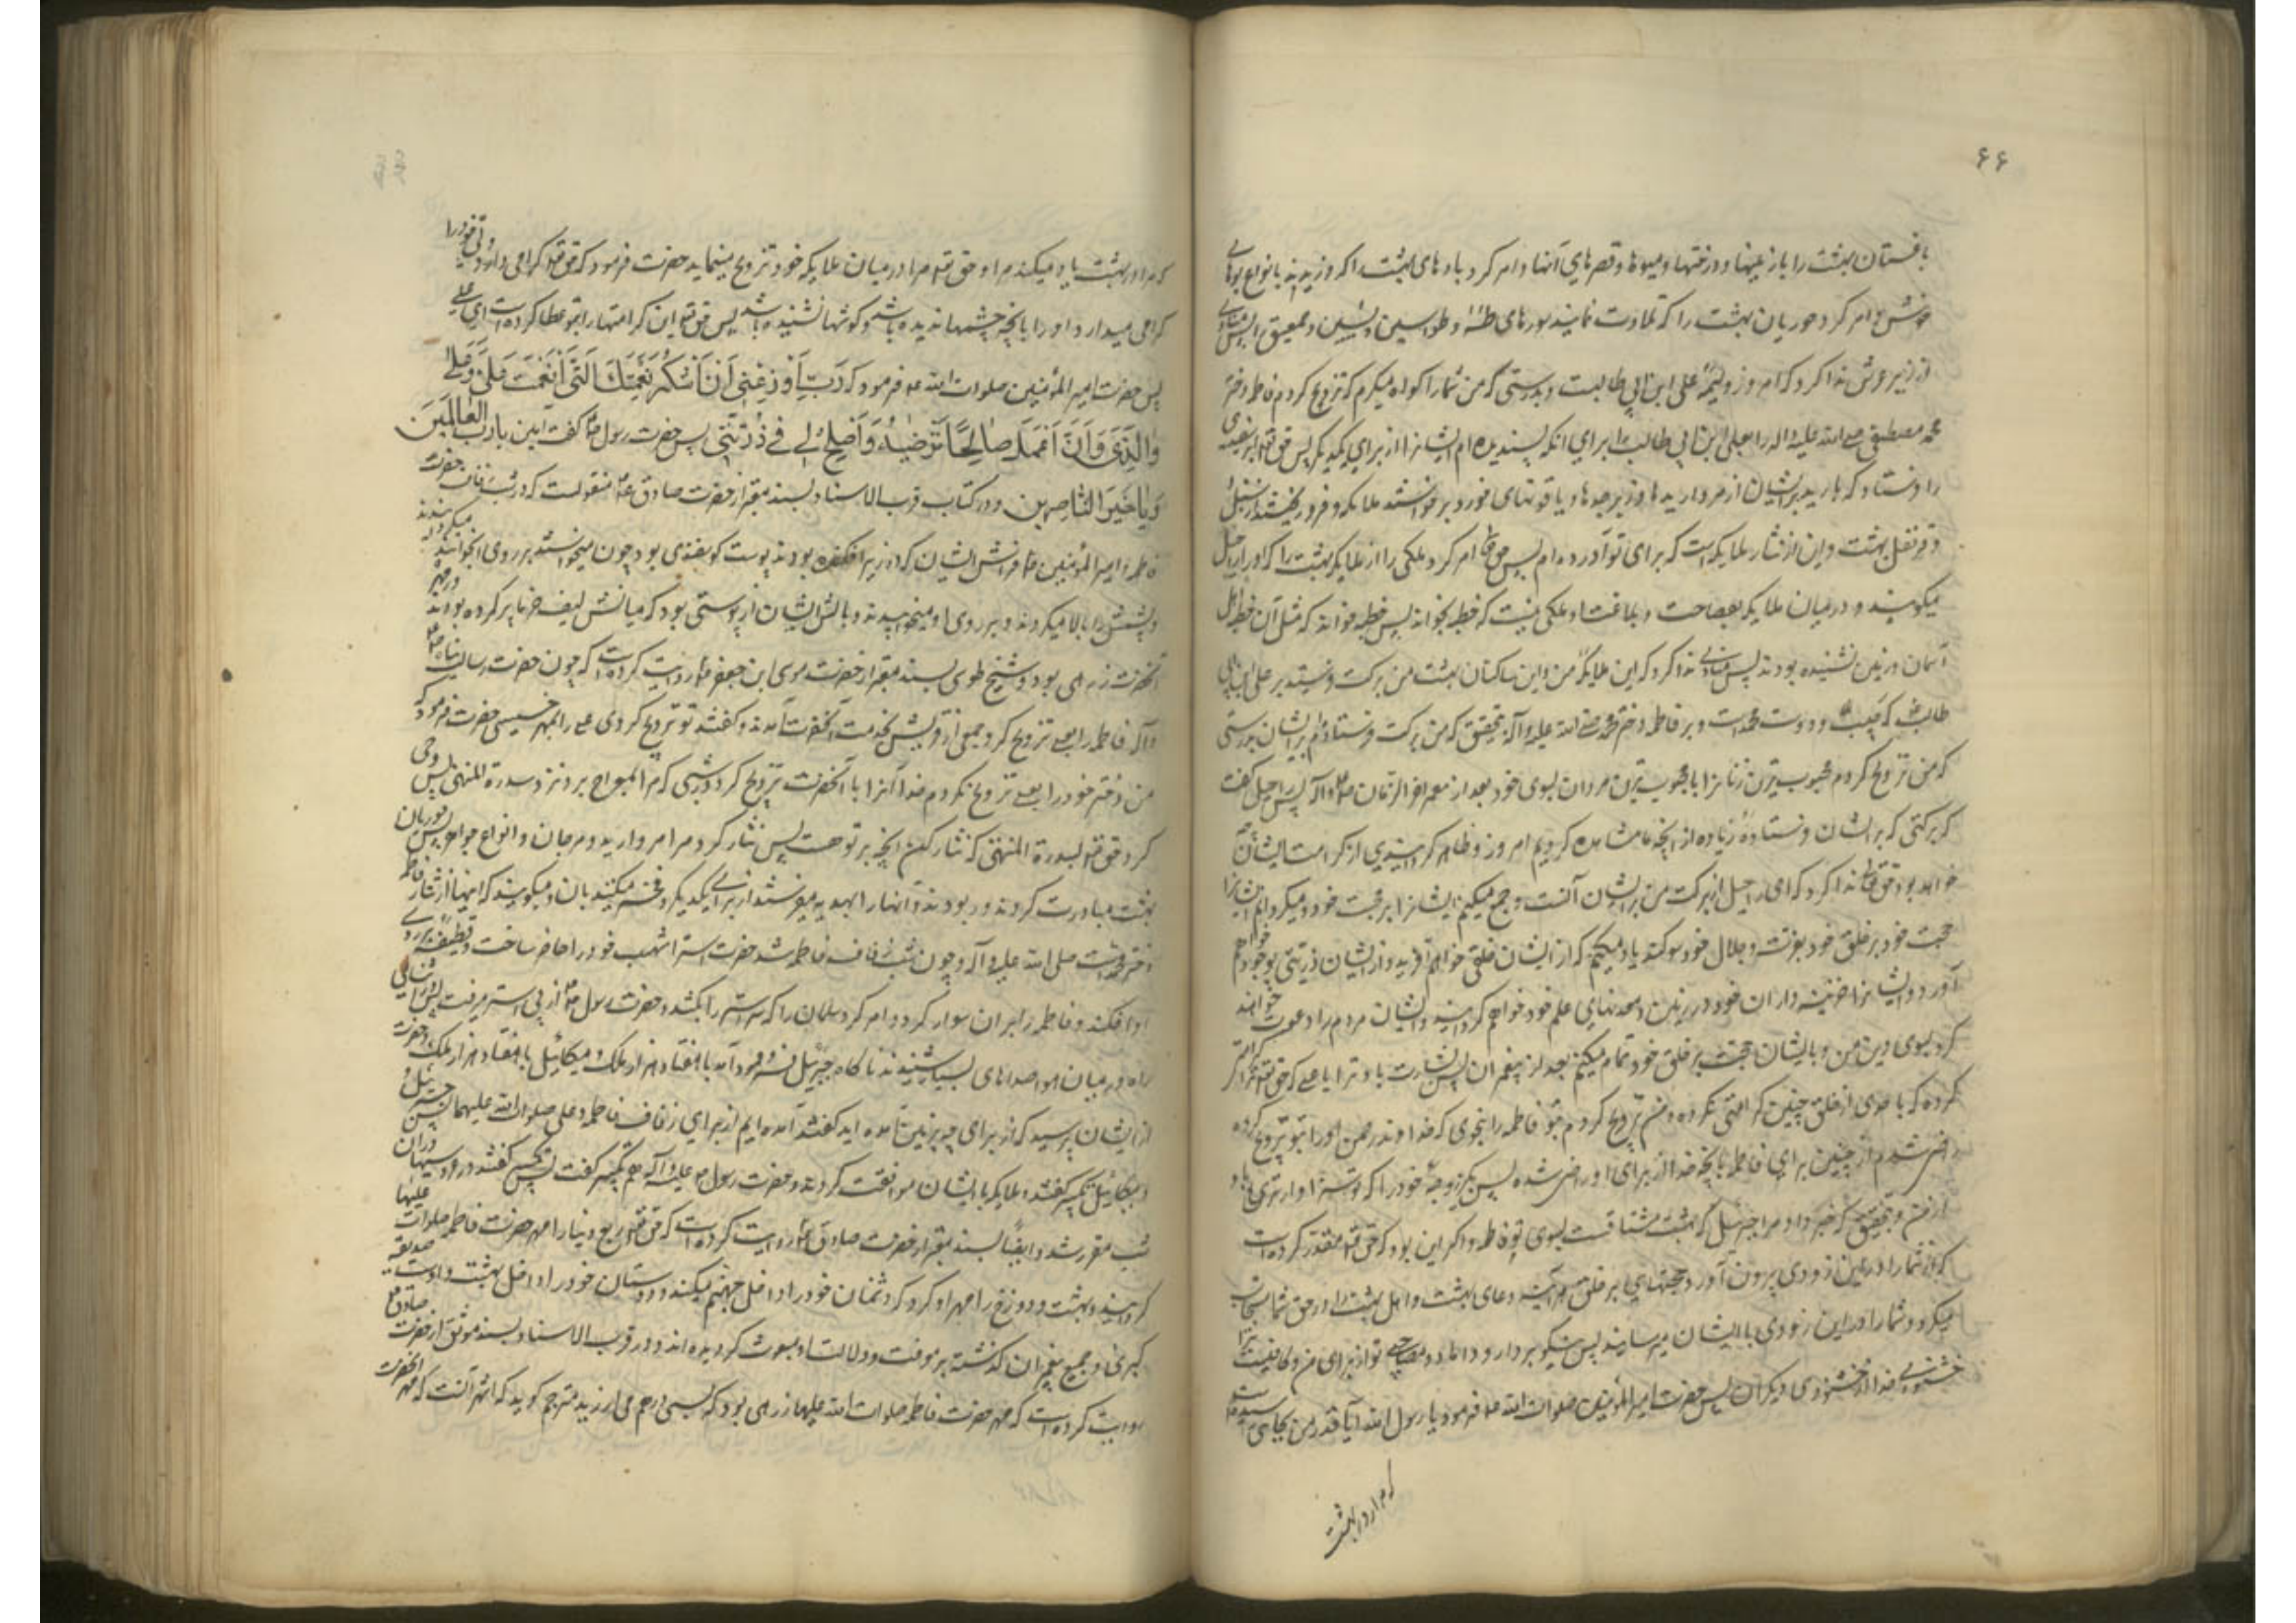 ۶۶
بافستان بهشت را با زمینها و درختها و میوها و قصرهای آنها و امر کرد بادهای بهشت را که وزیدند بانواع بوهای
خوش و امر کرد حوریان بهشت را که تلاوت نمایند سورهای طه و طواسین و یس و حمعسق را پس منادی
از زیر عرش ندا کرد که امروز ولیمهٔ علی ابن ابی طالبست و بدرستی که من شما را گواه میگیرم که تزویج کردم فاطمه دختر
محمد مصطفی صلی الله علیه واله را بعلی ابن ابی طالب برای آنکه پسندیده ام ایشانرا از برای یکدیگر پس حق تعه ابر سفیدی
را فرستاد که بارید بر ایشان از مرواریدها و زبرجدها و یاقوتهای خود و برخواستند ملائکه و فرو ریختند از سنبل
و قرنفل بهشت و این از نثار ملائکه است که برای تو آورده ام پس حق تعا امر کرد ملکی را از ملائکه بهشت را که او را راحیل
میگویند و در میان ملائکه بفصاحت و بلاغت او ملکی نیست که خطبه بخواند پس خطبه خواند که مثل آن خطبه اهل
آسمان و زمین نشنیده بودند پس منادی ندا کرد که ای ملائکهٔ من و ای ساکنان بهشت من برکت فرستید بر علی ابن ابی
طالب که حبیب و دوست محمدست و بر فاطمه دختر محمد صلی الله علیه وآله بتحقیق که من برکت فرستادم بر ایشان بدرستی
که من تزویج کردم محبوب ترین زنانرا با محبوب ترین مردان بسوی خود بعد از پیغمبر آخر الزمان ص وآله پس راحیل گفت
که برکتی که بر ایشان فرستادهٔ زیاده از آنچه ما مشاهده کردیم امروز و ظاهر گردانیدی از کرامت ایشان چه
خواهد بود حق تعا ندا کرد که ای راحیل از برکت من بر ایشان آنست که جمع میکنم ایشانرا بر محبت خود و میگردانم ایشانرا
حجت خود بر خلق خود بعزت و جلال خود سوگند یاد میکنم که از ایشان خلقی خواهم آفرید و از ایشان ذریتی بوجود خواهم
آورد و ایشانرا خزینه داران خود در زمین و معدنهای علم خود خواهم گردانید و ایشان مردم را دعوت خواهند
کرد بسوی دین من و بایشان حجت بر خلق خود تمام میکنم بعد از پیغمبران پس بشارت باد ترا یا علی که حق تعه ترا کرامتی
کرده که با احدی از خلق چنین کرامتی نکرده و من تزویج کردم بتو فاطمه را بنحوی که خداوند رحمن او را بتو تزویج کرده
راضی شدم از چنین برای فاطمه بآنچه خدا از برای او راضی شده پس بگیر زوجهٔ خود را که تو سزاوارتری باو
از من و بتحقیق که خبر داد مرا جبرئیل که بهشت مشتاقست بسوی تو و فاطمه و اگر این بود که حق تعه مقدر کرده است
که از شما را در عین زودی بیرون آورد حجتهایی بر خلق هر آینه دعای بهشت و اهل بهشت را در حق شما مستجاب
میکرد و شما را در این زودی با ایشان میرسانید پس نیکو برادر و داماد و مصاحبی تو از برای من و کافیست ترا
خشنودی خدا از خشنودی دیگران پس حضرت امیر المؤمنین صلوات الله علیه فرمود یا رسول الله آیا قدر من بجایی رسیده
که مرا در بهشت
که مرا در بهشت یاد میکنند مرا و حق تعه مرا در میان ملائکه خود تزویج مینماید حضرت فرمود که حق تعه گرامی دارد ولی خود را
گرامی میدارد او را بآنچه چشمها ندیده باشد و گوشها نشنیده باشد پس حق تعه این کرامتها را بتو عطا کرده است ای علی
پس حضرت امیر المؤمنین صلوات الله علیه فرمود که رَبِّ اَوْزِعْنِی اَنْ اَشْکُرَ نِعْمَتَكَ الَّتِی اَنْعَمْتَ عَلَیَّ وَعَلی
وَالِدَیَّ وَاَنْ اَعْمَلَ صَالِحًا تَرْضیٰهُ وَاَصْلِحْ لِی فِی ذُرِّیَّتِی پس حضرت رسول ص گفت آمین یا رب العالمین
وَیَا خَیْرَ النَّاصِرِینَ و در کتاب قرب الاسناد بسند معتبر از حضرت صادق ع منقولست که در شب زفاف حضرت
فاطمه و امیر المؤمنین ع فرش ایشان که در زیر افکنده بودند پوست گوسفندی بود چون میخواستند بر روی آن بخوابند میگردانیدند
و پشمش را بالا میکردند و بر روی او میخوابیدند و بالش ایشان از پوستی بود که میانش لیف خرما پر کرده بودند و مهر
آنحضرت زرهی بود و شیخ طوسی بسند معتبر از حضرت موسی ابن جعفر ع روایت کرده است که چون حضرت رسالت پناه ص
وآله فاطمه را بعلی تزویج کرد جمعی از قریش بخدمت آنحضرت آمدند و گفتند تو تزویج کردی علی را بمهر خسیسی حضرت فرمود که
من دختر خود را بعلی تزویج نکردم خدا آنرا با آنحضرت تزویج کرد در شبی که مرا بمعراج برد نزد سدرة المنتهی پس وحی
کرد حق تعه بسدرة المنتهی که نثار کن آنچه بر تو هست پس نثار کرد مر امروارید و مرجان و انواع جواهر پس حوریان
بهشت مبادرت کردند و ربودند و آنها را بهدیه میفرستند از برای یکدیگر و فخر میکنند بآن و میگویند که اینها از نثار فاطمه
دختر محمدست صلی الله علیه وآله و چون شب زفاف فاطمه شد حضرت استر اشهب خود را حاضر ساخت و قطیفه بر روی
او افکند و فاطمه را بر آن سوار کرد و امر کرد سلمان را که سر استر را بکشد و حضرت رسول ص از پی استر میرفت پس در اثنای
راه در میان هوا صداهای بسیار شنیدند ناگاه جبرئیل فرود آمد با هفتاد هزار ملک و میکائیل با هفتاد هزار ملک و حضرت
از ایشان پرسید که از برای چه بزمین آمده اید گفتند آمده ایم از برای زفاف فاطمه و علی صلوات الله علیهما پس جبرئیل
و میکائیل تکبیر گفتند و ملائکه با ایشان موافقت کردند و حضرت رسول ص علیه وآله هم تکبیر گفت پس تکبیر گفتند در عروسیها از آن
شب مقرر شد و ایضًا بسند معتبر از حضرت صادق ع روایت کرده است که حق تعه ربع دنیا را مهر حضرت فاطمه صلوات علیها
گردانید و بهشت و دوزخ را مهر او کرد که دشمنان خود را داخل جهنم میکند و دوستان خود را داخل بهشت و اوست صدیقه
کبری و جمیع پیغمبران گذشته بر معرفت و ولالت او مبعوث گردیده اند و در قرب الاسناد بسند موثق از حضرت صادق ع
روایت کرده است که مهر حضرت فاطمه صلوات الله علیها زرهی بود که بسی درهم می ارزید مترجم گوید که اشهر آنست که مهر آنحضرت